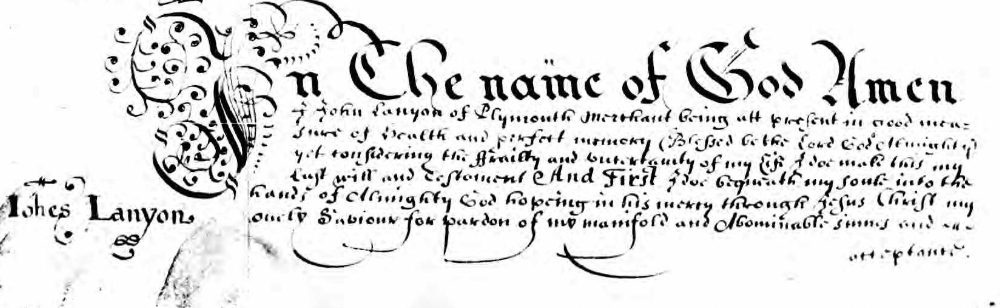 In The name of God Amen
I John Lanyon of Plymouth Merchant being att present in good mea-
sure of Health and perfect memory (Blessed be the Lord God Almighty)
yet considering the ffrailty and uncertainty of my life I doe make this my
Last will and Testament And First I doe bequeath my soule into the
hands of Almighty God hopeing in his mercy through Jesus Christ my
onely Saviour for pardon of my manifold and Abominable sinnes and
acceptance.
Johes Lanyon